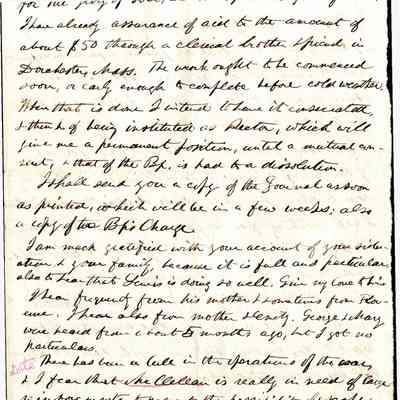 I have already assurance of aid to the amount of
about $50 through a clerical brother & friend in
Dorchester, Mass. The work ought to be commenced
soon, or early enough to complete before cold weather.
When that is done I intend to have it consecrated,
& think of being instituted as Rector, which will
give me a permanent position, until a mutual con-
sent, & that of the Bp, is had to a dissolution.
I shall send you a copy of the Journal as soon
as printed, which will be in a few weeks; also
a copy of the Bp's Charge
I am much gratified with your account of your situ-
ation & your family because it is full and particular,
also to hear that Lewis is doing so well. Give my love to his
I hear frequently from his mother & sometimes from
I hear also from mother & George & Mary
were heard from about 5 months ago, but I got no
particulars.
There has been a lull in the operations of the war,
& I fear that McClellan is really in need of large